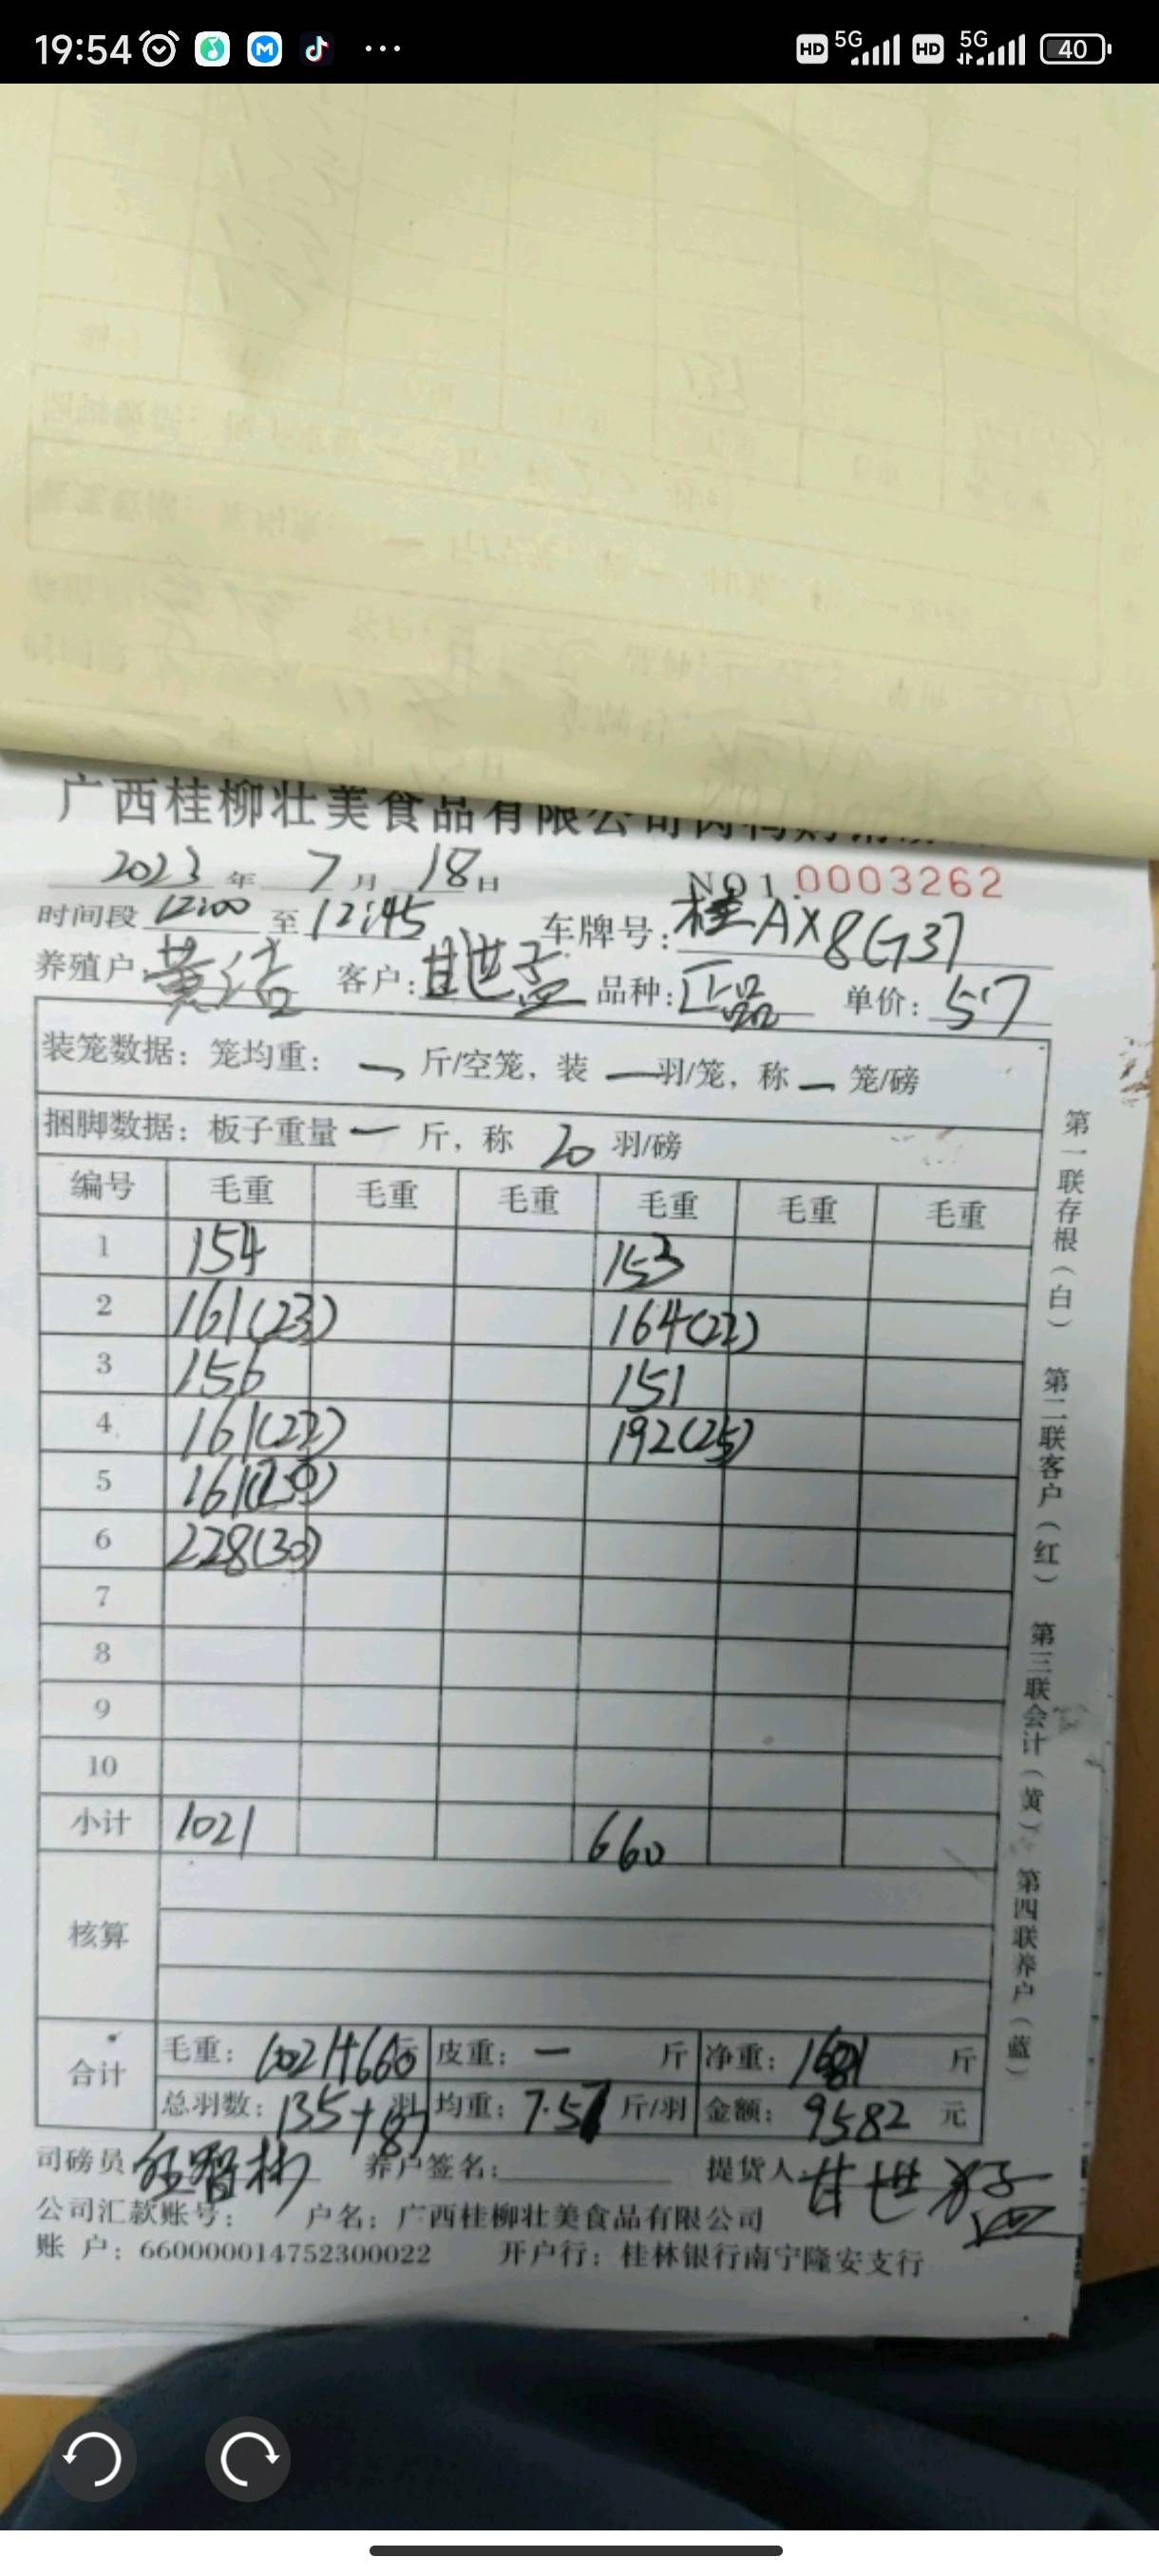 19:54 HD 5G HD 5G 40
广西桂柳壮美食品有限公司肉鸭购销
2023年 7月 18日 NO1.0003262
时间段 12:00 至 12:45 车牌号: 桂AX8G37
养殖户: 黄洁 客户: 甘世孟 品种: 正品 单价: 5.7
装笼数据: 笼均重: — 斤/空笼, 装 — 羽/笼, 称 — 笼/磅
捆脚数据: 板子重量 — 斤, 称 20 羽/磅
编号 毛重 毛重 毛重 毛重 毛重 毛重
1 154 153
2 161(23) 164(22)
3 156 151
4 161(22) 192(25)
5 161
6 228(30)
7
8
9
10
小计 1021 660
核算
合计 毛重: 1021+660 斤 皮重: — 斤 净重: 1681 斤
总羽数: 135+87 羽 均重: 7.57 斤/羽 金额: 9582 元
司磅员 养户签名: 提货人 甘世孟
公司汇款账号: 户名: 广西桂柳壮美食品有限公司
账 户: 660000014752300022 开户行: 桂林银行南宁隆安支行
第一联存根(白) 第二联客户(红) 第三联会计(黄) 第四联养户(蓝)